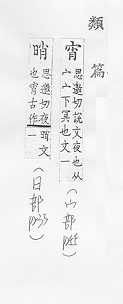 類篇
宵
思邀切說文夜也从
宀宀下冥也文一
思邀切夜
也宵古作
文
一
(日部